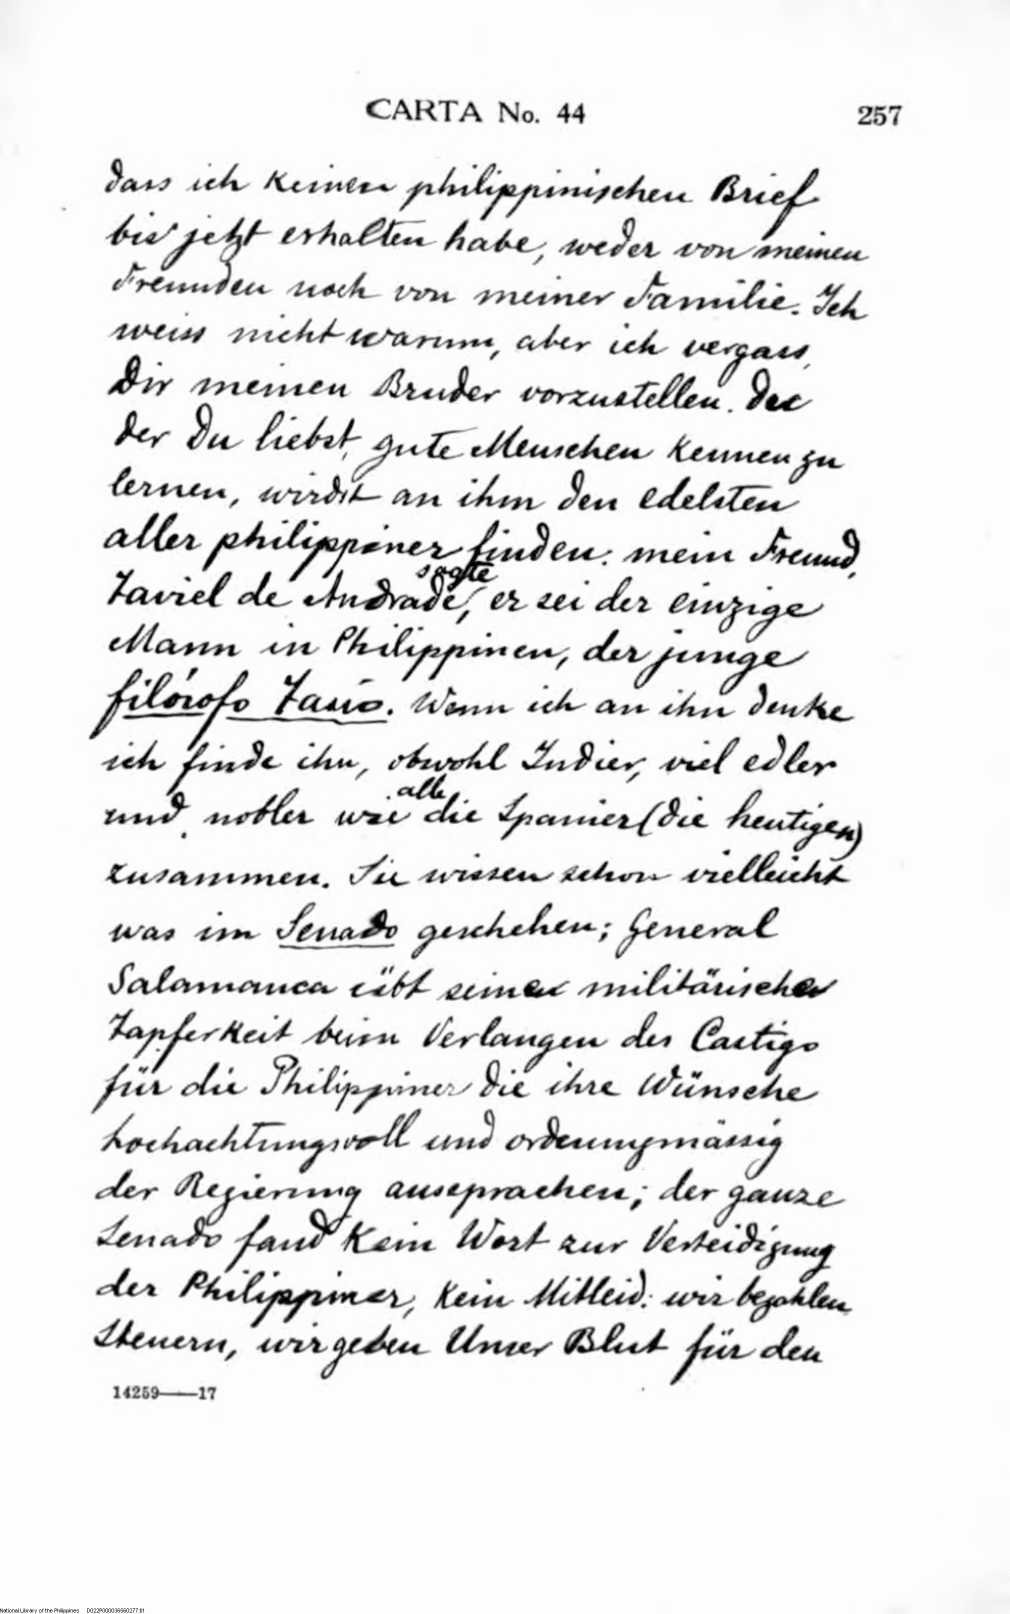 CARTA No. 44 257
dass ich keinen philippinischen Brief
bis jetzt erhalten habe, weder von meinen
Freunden noch von meiner Familie. Ich
weiss nicht warum, aber ich vergass,
Dir meinen Bruder vorzustellen.
der Du liebst, gute Menschen kennen zu
lernen, wirdst an ihm den edelsten
aller philippiner finden: mein Freund,
Taviel de Andrade, sagte er sei der einzige
Mann in Philippinen, der junge
filósofo Tasio. Wenn ich an ihn denke
ich finde ihn, obwohl Indier, viel edler
und nobler wie alle die Spanier (die heutigen)
zusammen. Sie wissen schon vielleicht
was im Senado geschehen; General
Salamanca übt seinen militärischen
Tapferkeit beim Verlangen des Castigo
für die Philippiner die ihre Wünsche
hochachtungsvoll und ordnungmässig
der Regierung aussprachen; der ganze
Senado fand kein Wort zur Verteidigung
der Philippiner, kein Mitleid: wir bezahlen
Steuern, wir geben Unser Blut für den
14259——17
National Library of the Philippines